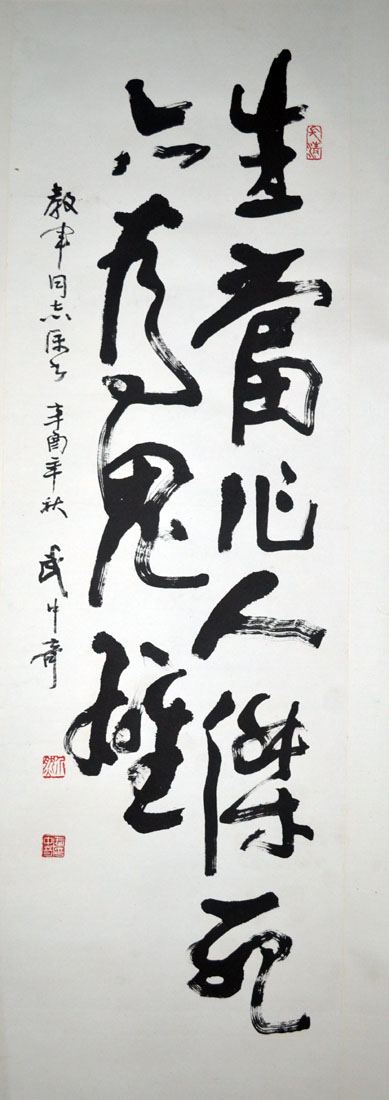 生當作人傑死
亦為鬼雄
教軍同志屬書 辛酉年秋 武中奇